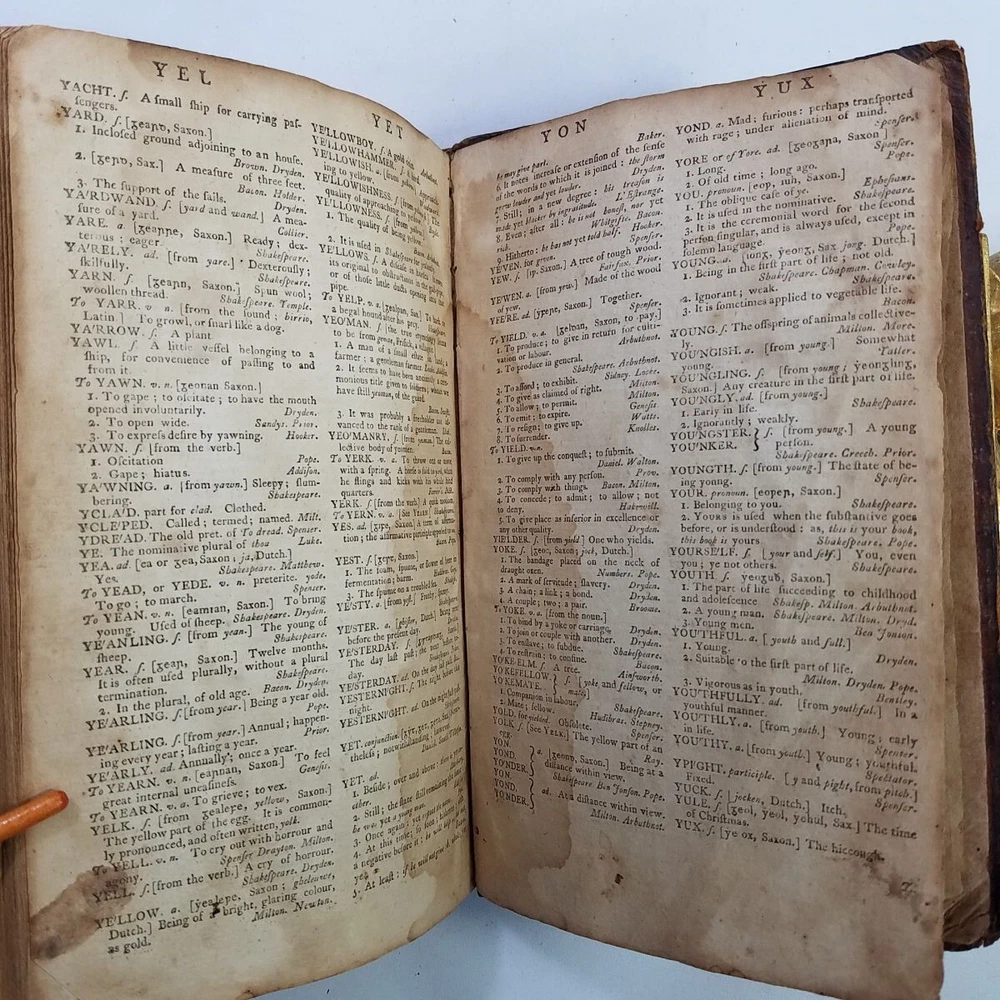 YEL
YACHT. ſ. A ſmall ſhip for carrying paſ-
ſengers.
YARD. ſ. [ᵹeaꞃꝺ, Saxon.]
1. Incloſed ground adjoining to an houſe.
Brown. Dryden.
2. [ᵹeꞃꝺ, Sax.] A meaſure of three feet.
Bacon. Holder.
3. The ſupport of the ſails. Dryden.
YA'RDWAND. ſ. [yard and wand.] A mea-
ſure of a yard. Collier.
YARE. a. [ᵹeaꞃƿe, Saxon.] Ready; dex-
terous; eager. Shakeſpeare.
YA'RELY. ad. [from yare.] Dexterouſly;
ſkilfully. Shakeſpeare.
YARN. ſ. [ᵹeaꞃn, Saxon.] Spun wool;
woollen thread. Shakeſpeare. Temple.
To YARR. v. n. [from the ſound; hirrio,
Latin] To growl, or ſnarl like a dog.
YA'RROW. ſ. A plant.
YAWL. ſ. A little veſſel belonging to a
ſhip, for convenience of paſſing to and
from it.
To YAWN. v. n. [ᵹeonan Saxon.]
1. To gape; to oſcitate; to have the mouth
opened involuntarily. Dryden.
2. To open wide. Sandys. Prior.
3. To expreſs deſire by yawning. Hooker.
YAWN. ſ. [from the verb.]
1. Oſcitation Pope.
2. Gape; hiatus. Addiſon.
YA'WNING. a. [from yawn.] Sleepy; ſlum-
bering. Shakeſpeare.
YCLA'D. part for clad. Clothed.
YCLE'PED. Called; termed; named. Milt.
YDRE'AD. The old pret. of To dread. Spenſer.
YE. The nominative plural of thou Luke.
YEA. ad. [ea or ᵹea, Saxon; ja, Dutch.]
Yes. Shakeſpeare. Matthew.
To YEAD, or YEDE. v. n. preterite. yode.
To go; to march. Spenſer.
To YEAN. v. n. [eanian, Saxon.] To bring
young. Uſed of ſheep. Shakeſpeare. Dryden.
YE'ANLING. ſ. [from yean.] The young of
ſheep. Shakeſpeare.
YEAR. ſ. [ᵹeaꞃ, Saxon.] Twelve months.
It is often uſed plurally, without a plural
termination. Shakeſpeare.
2. In the plural, of old age. Bacon. Dryden.
YE'ARLING. ſ. [from year.] Being a year old.
Pope.
YE'ARLING. ſ. [from year.] Annual; happen-
ing every year; laſting a year. Prior.
YE'ARLY. ad. Annually; once a year.
To YEARN. v. n. [eaꞃnan, Saxon.] To feel
great internal uneaſineſs. Geneſis.
To YEARN. v. a. To grieve; to vex.
YELK. ſ. [from ᵹealeƿe, yellow, Saxon.]
The yellow part of the egg. It is common-
ly pronounced, and often written, yolk.
To YELL. v. n. To cry out with horrour and
agony. Spenſer Drayton. Milton.
YELL. ſ. [from the verb.] A cry of horrour.
Shakeſpeare. Dryden.
YE'LLOW. a. [ᵹealeƿe, Saxon; gheleuwe,
Dutch.] Being of a bright, glaring colour,
as gold. Milton. Newton.
YET
YE'LLOWBOY. ſ. A gold coin.
YE'LLOWHAMMER. ſ. A bird.
YE'LLOWISH. a. [from yellow.] Approach-
ing to yellow.
YE'LLOWISHNESS. ſ. [from yellowiſh.] The
quality of approaching to yellow.
YE'LLOWNESS. ſ. [from yellow.]
1. The quality of being yellow.
2. It is uſed in Shakeſpeare for jealouſy.
YE'LLOWS. ſ. A diſeaſe in horſes
its original to obſtructions in the
or thoſe little ducts opening into
pipe.
To YELP. v. a. [ᵹealpan, Sax.] To bark
a beagal hound after his prey.
YEO'MAN. ſ.
1. A man of a ſmall eſtate in land; a
farmer; a gentleman farmer.
2. It ſeems to have been anciently a cere-
monious title given to ſoldiers: whence we
have ſtill yeoman of the guard.
3. It was probably a freeholder not ad-
vanced to the rank of a gentleman.
YEO'MANRY. ſ. [from yeoman.] The col-
lective body of yeomen. Bacon.
To YERK. v. a. To throw out or move
with a ſpring. A horſe is ſaid to yerk, when
he flings and kicks with his whole hind
quarters.
YERK. ſ. [from the verb.] A quick motion.
To YERN. v. a. [See YEARN.]
YES. ad. [ᵹiꞅe, Saxon.] A term of affirma-
tion; the affirmative particle oppoſed to no.
YEST. ſ. [ᵹeꞅꞇ, Saxon.]
1. The foam, ſpume, or flower of beer in
fermentation; barm.
2. The ſpume on a troubled ſea.
YE'STY. a. [from yeſt.] Frothy; ſpumy.
YE'STER. a. [ghiſter, Dutch.] Being next
before the preſent day. Dryden.
YE'STERDAY. ſ.
The day laſt paſt; the next day before to-day.
YE'STERDAY. ad. On the day laſt paſt.
YE'STERNIGHT. ſ. The night before this
night.
YE'STERNIGHT. ad. On the night laſt paſt.
YET. conjunction. [ᵹyꞇ, ᵹeꞇ, ᵹeꞇa, Saxon.] Never-
theleſs; notwithſtanding; however.
YET. ad.
1. Beſide; over and above.
2. Still; the ſtate ſtill remaining the ſame.
3. Once again;
4. At this time; ſo ſoon; hitherto: with
a negative before it;
5. At leaſt:
YON
he may give part. Baker.
6. It notes increaſe or extenſion of the ſenſe
of the words to which it is joined: the ſtorm
grew louder and yet louder. Dryden.
7. Still; in a new degree: his treaſon is
made yet blacker by ingratitude. L'Eſtrange.
8. Even; after all: he is not honeſt, nor yet
rich. Whitgifte. Bacon.
9. Hitherto: he has not yet told half. Hooker.
YE'VEN. for given. Spenſer.
YEW. ſ. [ip. Saxon.] A tree of tough wood.
Fairfax. Prior.
YE'WEN. a. [from yew.] Made of the wood
of yew.
YE'RE. ad. [yꞃeꞃe, Saxon.] Together.
Spenſer.
To YIELD. v. a. [ᵹelꝺan, Saxon, to pay.]
1. To produce; to give in return for culti-
vation or labour. Arbuthnot.
2. To produce in general.
Shakeſpeare. Arbuthnot.
3. To afford; to exhibit. Sidney. Locke.
4. To give as claimed of right. Milton.
5. To allow; to permit. Geneſis
6. To emit; to expire. Watts.
7. To reſign; to give up. Knolles.
8. To ſurrender.
To YIELD. v. n.
1. To give up the conqueſt; to ſubmit.
Daniel. Walton.
2. To comply with any perſon. Prov.
3. To comply with things. Bacon. Milton.
4. To concede; to admit; to allow; not
to deny. Hakewill.
5. To give place as inferior in excellence or
any other quality. Dryden.
YIE'LDER. ſ. [from yield] One who yields.
YOKE. ſ. [ᵹeoc, Saxon; jock, Dutch.]
1. The bandage placed on the neck of
draught oxen. Numbers. Pope.
2. A mark of ſervitude; ſlavery. Dryden.
3. A chain; a link; a bond. Dryden.
4. A couple; two; a pair. Broome.
To YOKE. v. a. [from the noun.]
1. To bind by a yoke or carriage. Dryden.
2. To join or couple with another. Dryden.
3. To enſlave; to ſubdue. Shakeſpeare.
4. To reſtrain; to confine. Bacon.
YO'KE-ELM. ſ. A tree. Ainſworth.
YO'KEFELLOW. } ſ. [yoke and fellow, or
YO'KEMATE. } mate.]
1. Companion in labour. Shakeſpeare.
2. Mate; fellow. Hudibras. Stepney.
YOLD. for yielded. Obſolete. Spenſer.
YOLK. ſ. [See YELK.] The yellow part of an
egg. Ray.
YON. } a. [ᵹeonꝺ, Saxon.] Being at a
YOND. } diſtance within view.
YO'NDER. } Shakeſpeare. Ben Jonſon. Pope.
YON. } ad. At a diſtance within view.
YOND. } Milton. Arbuthnot.
YO'NDER. }
YUX
YOND. a. Mad; furious: perhaps tranſported
with rage; under alienation of mind.
Spenſer.
YORE or of Yore. ad. [ᵹeoᵹaꞃa, Saxon]
1. Long. Spenſer.
2. Of old time; long ago. Pope.
YOU. pronoun. [eoƿ, iuh, Saxon.]
1. The oblique caſe of ye. Epheſians.
2. It is uſed in the nominative. Shakeſpeare.
3. It is the ceremonial word for the ſecond
perſon ſingular, and is always uſed, except in
ſolemn language. Pope.
YOUNG. a. [ionᵹ, ẏeonᵹ, Sax jong. Dutch.]
1. Being in the firſt part of life; not old.
Shakeſpeare. Chapman. Cowley.
2. Ignorant; weak. Shakeſpeare.
3. It is ſometimes applied to vegetable life.
Bacon.
YOUNG. ſ. The offspring of animals collective-
ly. Milton. More.
YOU'NGISH. a. [from young.] Somewhat
young. Tatler.
YOU'NGLING. ſ. [from young; ẏeonᵹlinᵹ,
Saxon.] Any creature in the firſt part of life.
YOU'NGLY. ad. [from young.]
1. Early in life. Shakeſpeare.
2. Ignorantly; weakly.
YOU'NGSTER. } ſ. [from young.] A young
YOU'NKER. } perſon.
Shakeſpeare. Creech. Prior.
YOUNGTH. ſ. [from young.] The ſtate of be-
ing young. Spenſer.
YOUR. pronoun. [eoƿeꞃ, Saxon.]
1. Belonging to you. Shakeſpeare.
2. YOURS is uſed when the ſubſtantive goes
before, or is underſtood: as, this is your book,
this book is yours Shakeſpeare. Pope.
YOURSE'LF. ſ. [your and ſelf.] You, even
you; ye not others. Shakeſpeare.
YOUTH. ſ. ẏeoᵹuð, Saxon.]
1. The part of life ſucceeding to childhood
and adoleſcence Shakeſp. Milton. Arbuthnot.
2. A young man. Shakeſp. Milton. Dryd.
3. Young men. Ben Jonſon.
YOU'THFUL. a. [youth and full.]
1. Young. Dryden.
2. Suitable to the firſt part of life.
Milton. Dryden. Pope.
3. Vigorous as in youth. Bentley.
YOU'THFULLY. ad. [from youthful.] In a
youthful manner.
YOU'THLY. a. [from youth.] Young; early
in life. Spenſer.
YOU'THY. a. [from youth.] Young; youthful.
Spectator.
YPI'GHT. participle. [y and pight, from pitch.]
Fixed. Spenſer.
YUCK. ſ [jocken, Dutch.] Itch.
YULE. ſ. [ᵹeol, ẏeol, ẏehul, Sax.] The time
of Chriſtmas.
YUX. ſ. [ẏe ox, Saxon.] The hiccough.